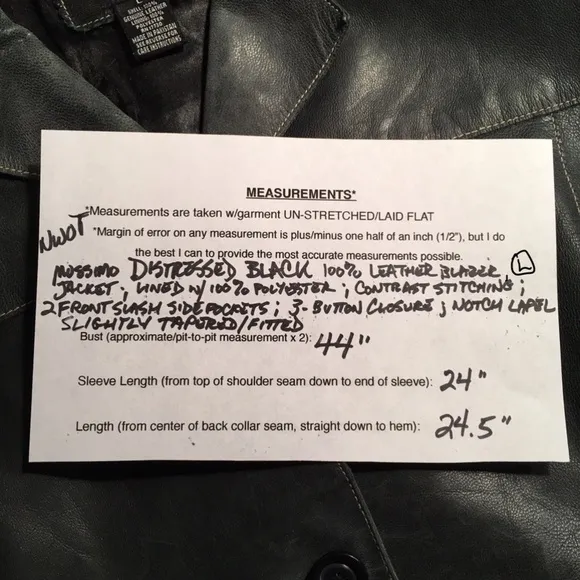 L
SHELL: 100%
GENUINE LEATHER
LINING: 100%
POLYESTER
MADE IN PAKISTAN
SEE REVERSE FOR
CARE INSTRUCTIONS
MEASUREMENTS*
*Measurements are taken w/garment UN-STRETCHED/LAID FLAT
NWOT
*Margin of error on any measurement is plus/minus one half of an inch (1/2"), but I do
the best I can to provide the most accurate measurements possible.
MOSSIMO DISTRESSED BLACK 100% LEATHER BLAZER, L
JACKET; LINED W/ 100% POLYESTER; CONTRAST STITCHING;
2 FRONT SLASH SIDE POCKETS; 3-BUTTON CLOSURE; NOTCH LAPEL
SLIGHTLY TAPERED/FITTED
Bust (approximate/pit-to-pit measurement x 2): 44"
Sleeve Length (from top of shoulder seam down to end of sleeve): 24"
Length (from center of back collar seam, straight down to hem): 24.5"